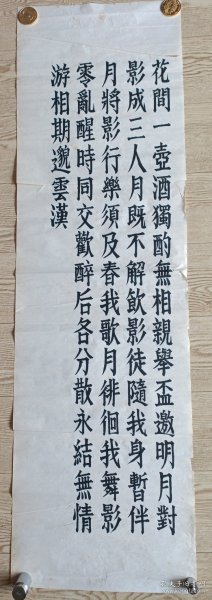 花間一壺酒獨酌無相親舉盃邀明月對
影成三人月既不解飲影徒隨我身暫伴
月將影行樂須及春我歌月徘徊我舞影
零亂醒時同交歡醉后各分散永結無情
游相期邈雲漢